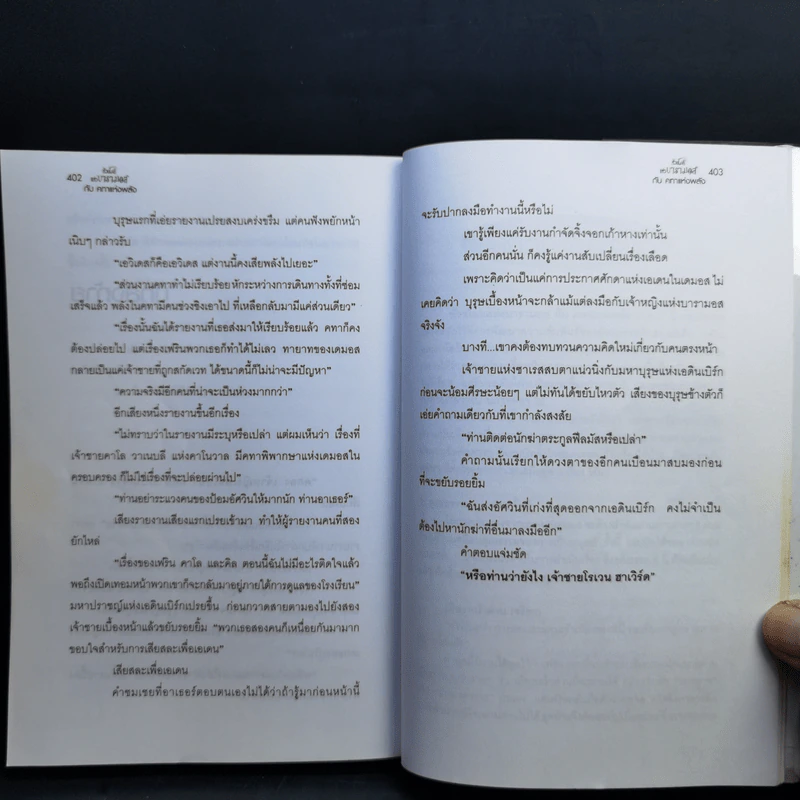 402
หัวขโมย
แห่งบารามอส
กับ คทาแห่งพลัง
บุรุษแรกที่เอ่ยรายงานเปรยสงบเคร่งขรึม แต่คนฟังพยักหน้า
เนิบๆ กล่าวรับ
“เอวิเดสก็คือเอวิเดส แต่งานนี้คงเสียพลังไปเยอะ”
“ส่วนงานคทาทำไม่เรียบร้อยหักระหว่างการเดินทางทั้งที่ซ่อม
เสร็จแล้ว พลังในคทามีคนช่วงชิงเอาไป ที่เหลือกลับมามีแค่ส่วนเดียว”
“เรื่องนั้นฉันได้รายงานที่เธอส่งมาให้เรียบร้อยแล้ว คทาก็คง
ต้องปล่อยไป แต่เรื่องเฟรินพวกเธอก็ทำได้ไม่เลว ทายาทของเดมอส
กลายเป็นแค่เจ้าชายที่ถูกสกัดเวท ได้ขนาดนี้ก็ไม่น่าจะมีปัญหา”
“ความจริงมีอีกคนที่น่าจะเป็นห่วงมากกว่า”
อีกเสียงหนึ่งรายงานขึ้นอีกเรื่อง
“ไม่ทราบว่าในรายงานมีระบุหรือเปล่า แต่ผมเห็นว่า เรื่องที่
เจ้าชายคาโล วาเนบลี แห่งคาโนวาล มีคทาพิพากษาแห่งเดมอสใน
ครอบครอง ก็ไม่ใช่เรื่องที่จะปล่อยผ่านไป”
“ท่านอย่าระแวงคนของป้อมอัศวินให้มากนัก ท่านอาเธอร์”
เสียงรายงานเสียงแรกเปรยเข้ามา ทำให้ผู้รายงานคนที่สอง
ยักไหล่
“เรื่องของเฟริน คาโล และคิล ตอนนี้ฉันไม่มีอะไรติดใจแล้ว
พอถึงเปิดเทอมหน้าพวกเขาก็จะกลับมาอยู่ภายใต้การดูแลของโรงเรียน”
มหาปราชญ์แห่งเอดินเบิร์กเปรยขึ้น ก่อนกวาดสายตามองไปยังสอง
เจ้าชายเบื้องหน้าแล้วขยับรอยยิ้ม “พวกเธอสองคนก็เหนื่อยกันมามาก
ขอบใจสำหรับการเสียสละเพื่อเอเดน”
เสียสละเพื่อเอเดน
คำชมเชยที่อาเธอร์ตอบตนเองไม่ได้ว่าถ้ารู้มาก่อนหน้านี้
หัวขโมย
แห่งบารามอส
กับ คทาแห่งพลัง
403
จะรับปากลงมือทำงานนี้หรือไม่
เขารู้เพียงแค่รับงานกำจัดจิ้งจอกเก้าหางเท่านั้น
ส่วนอีกคนนั่น ก็คงรู้แค่งานสับเปลี่ยนเรื่องเลือด
เพราะคิดว่าเป็นแค่การประกาศศักดาแห่งเอเดนในเดมอส ไม่
เคยคิดว่า บุรุษเบื้องหน้าจะกล้าแม้แต่ลงมือกับเจ้าหญิงแห่งบารามอส
จริงจัง
บางที...เขาคงต้องทบทวนความคิดใหม่เกี่ยวกับคนตรงหน้า
เจ้าชายแห่งซาเรสสบตาแน่วนิ่งกับมหาบุรุษแห่งเอดินเบิร์ก
ก่อนจะน้อมศีรษะน้อยๆ แต่ไม่ทันได้ขยับไหวตัว เสียงของบุรุษข้างตัวก็
เอ่ยคำถามเดียวกับที่เขากำลังสงสัย
“ท่านติดต่อนักฆ่าตระกูลฟีลมัสหรือเปล่า”
คำถามนั้นเรียกให้ดวงตาของอีกคนเบือนมาสบมองก่อน
ที่จะขยับรอยยิ้ม
“ฉันส่งอัศวินที่เก่งที่สุดออกจากเอดินเบิร์ก คงไม่จำเป็น
ต้องไปหานักฆ่าที่อื่นมาลงมืออีก”
คำตอบแจ่มชัด
“หรือท่านว่ายังไง เจ้าชายโรเวน ฮาเวิร์ด”